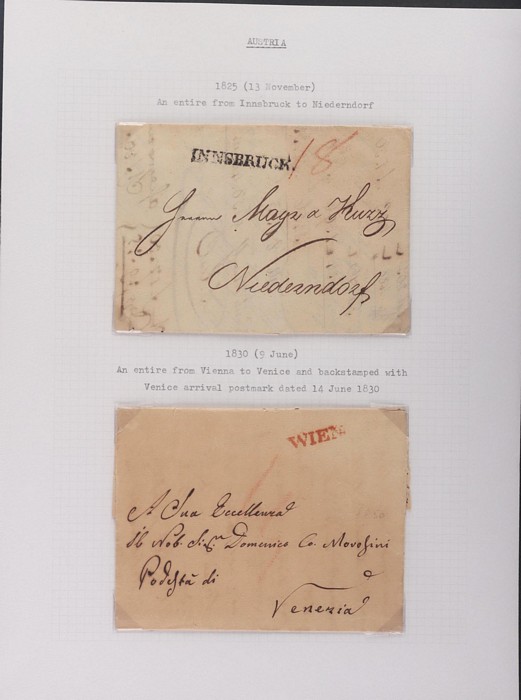 AUSTRIA
1825 (13 November)
An entire from Innsbruck to Niederndorf
INNSBRUCK.
18
Mayr & Kurz
Niederndorf
1830 (9 June)
An entire from Vienna to Venice and backstamped with
Venice arrival postmark dated 14 June 1830
WIEN
A Sua Eccellenza
Il Nob. Sigr Domenico Co. Morosini
Podestà di
Venezia